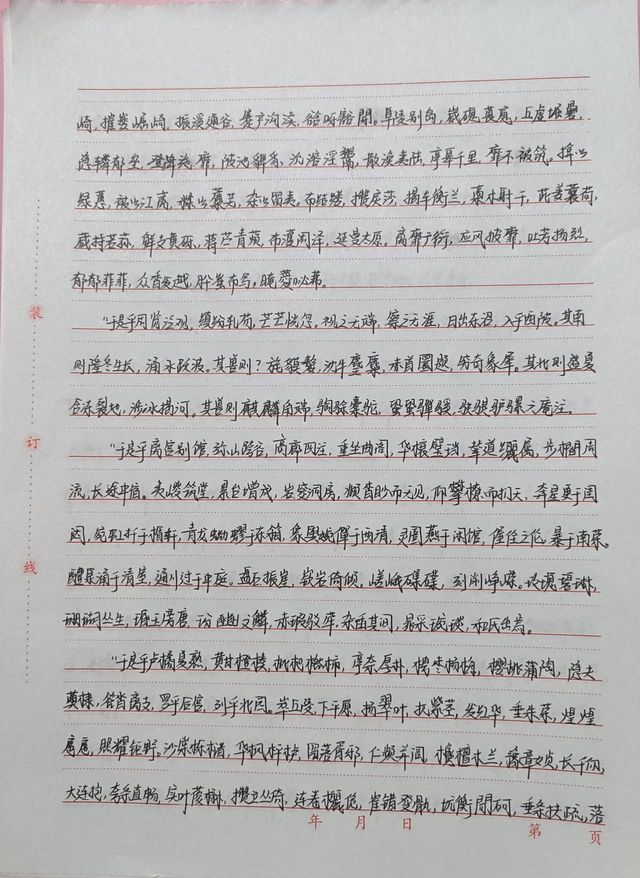 崎，摧崣崛崎，振溪通谷，蹇产沟渎，谽呀豁閜。阜陵别岛，崴磈嵔廆，丘虚堀礨，
隐辚郁垒，登降施靡，陂池貏豸，沇溶淫鬻，散涣夷陆，亭皋千里，靡不被筑。掩以
绿蕙，被以江离，糅以蘪芜，杂以留夷。布结缕，攒戾莎，揭车衡兰，槀本射干，茈姜蘘荷，
葴持若荪，鲜支黄砾，蒋苎青薠，布濩闳泽，延曼太原，离靡广衍，应风披靡，吐芳扬烈，
郁郁菲菲，众香发越，肸蚃布写，晻薆咇茀。
“于是乎周览泛观，缤纷轧芴，芒芒恍忽，视之无端，察之无涯，日出东沼，入乎西陂。其南
则隆冬生长，涌水跃波。其兽则？旄貘嫠，沈牛麈麋，赤首圜题，穷奇象犀。其北则盛夏
含冻裂地，涉冰揭河，其兽则麒麟角端，騊駼橐驼，蛩蛩驒騱，駃騠驴骡
“于是乎离宫别馆，弥山跨谷，高廊四注，重坐曲阁，华榱璧珰，辇道纚属，步櫩周
流，长途中宿。夷嵕筑堂，累台增成，岩穾洞房，頫杳眇而无见，仰攀橑而扪天，奔星更于闺
闼，宛虹扡于楯轩，青龙蚴蟉于东箱，象舆婉僤于西清，灵圄燕于闲馆，偓佺之伦，暴于南荣。
醴泉涌于清室，通川过于中庭。盘石振崖，嵚岩倚倾，嵯峨磼礏，刻削峥嵘。玫瑰碧琳，
珊瑚丛生，琘玉旁唐，玢豳文鳞，赤瑕驳荦，杂臿其间，晁采琬琰，和氏出焉。
“于是乎卢橘夏熟，黄甘橙楱，枇杷橪柿，亭柰厚朴，梬枣杨梅，樱桃蒲陶，隐夫
薁棣，答沓离支，罗乎后宫，列乎北园。䝯丘陵，下平原，扬翠叶，扤紫茎，发红华，垂朱荣，煌煌
扈扈，照耀钜野。沙棠栎槠，华枫枰栌，留落胥邪，仁频并闾，欃檀木兰，豫章女贞，长千仞，
大连抱，夸条直畅，实叶葰楙，攒立丛倚，连卷欐佹，崔错癹骫，坑衡閜砢，垂条扶疏，落
装
订
线
年 月 日
第 页